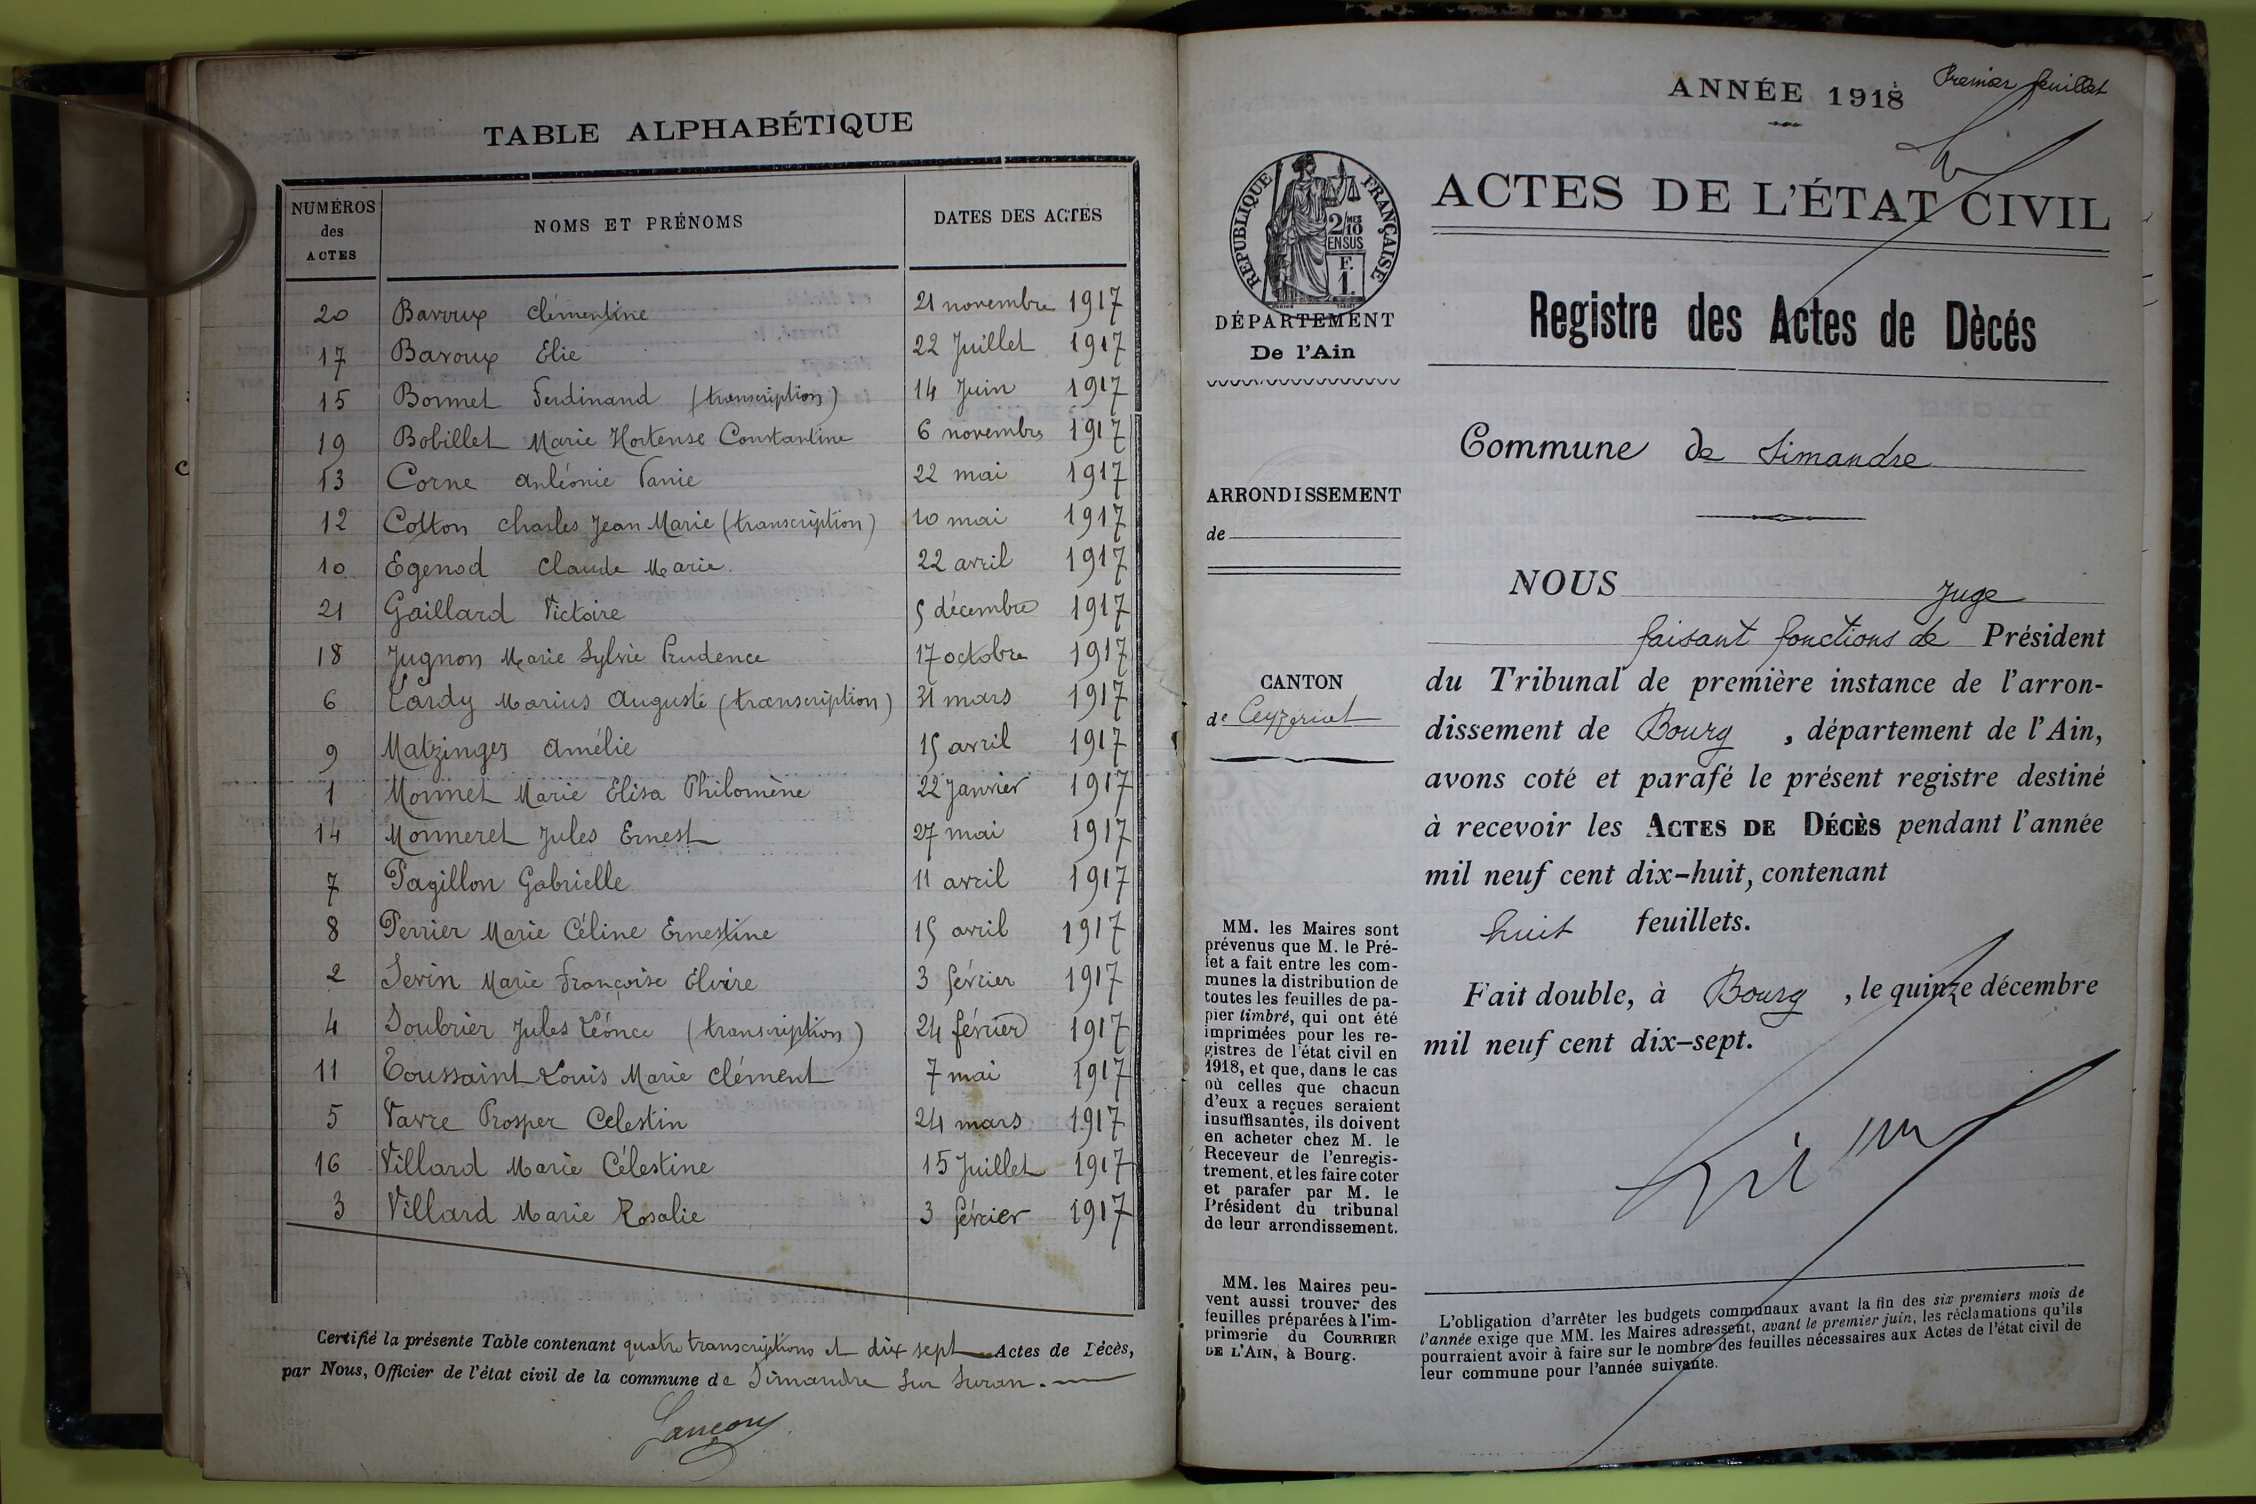 TABLE ALPHABÉTIQUE
NUMÉROS des ACTES NOMS ET PRÉNOMS DATES DES ACTES
20 Baroux Clémentine 21 novembre 1917
17 Baroux Elie 22 Juillet 1917
15 Bonnet Ferdinand (transcription) 14 Juin 1917
19 Bobillet Marie Hortense Constantine 6 novembre 1917
13 Corne Anléonie Fanie 22 mai 1917
12 Cotton Charles Jean Marie (transcription) 10 mai 1917
10 Egenod Claude Marie 22 avril 1917
21 Gaillard Victoire 5 décembre 1917
18 Jugnon Marie Sylvie Prudence 17 octobre 1917
6 Lardy Marius Auguste (transcription) 31 mars 1917
9 Matzinger Amélie 15 avril 1917
1 Monnet Marie Elisa Philomène 22 Janvier 1917
14 Monneret Jules Ernest 27 mai 1917
7 Pagillon Gabrielle 11 avril 1917
8 Perrier Marie Céline Ernestine 15 avril 1917
2 Sevin Marie Françoise Elvire 3 février 1917
4 Soubrier Jules Léonce (transcription) 24 février 1917
11 Toussaint Louis Marie Clément 7 mai 1917
5 Vavre Prosper Celestin 24 mars 1917
16 Villard Marie Célestine 15 Juillet 1917
3 Villard Marie Rosalie 3 février 1917
Certifié la présente Table contenant quatre transcriptions et dix sept Actes de Décès,
par Nous, Officier de l'état civil de la commune de Simandre sur Suran.
Lançon
Premier feuillet
ANNÉE 1918
ACTES DE L'ÉTAT CIVIL
RÉPUBLIQUE FRANÇAISE
2/10 MES
EN SUS
F.
1.
DÉPARTEMENT
De l'Ain
ARRONDISSEMENT
de
CANTON
de Ceyzériat
MM. les Maires sont
prévenus que M. le Pré-
fet a fait entre les com-
munes la distribution de
toutes les feuilles de pa-
pier timbré, qui ont été
imprimées pour les re-
gistres de l'état civil en
1918, et que, dans le cas
où celles que chacun
d'eux a reçues seraient
insuffisantes, ils doivent
en acheter chez M. le
Receveur de l'enregis-
trement, et les faire coter
et parafer par M. le
Président du tribunal
de leur arrondissement.
MM. les Maires peu-
vent aussi trouver des
feuilles préparées à l'im-
primerie du COURRIER
DE L'AIN, à Bourg.
Registre des Actes de Dècés
Commune de Simandre
NOUS Juge
faisant fonctions de Président
du Tribunal de première instance de l'arron-
dissement de Bourg, département de l'Ain,
avons coté et parafé le présent registre destiné
à recevoir les ACTES DE DÉCÈS pendant l'année
mil neuf cent dix-huit, contenant
huit feuillets.
Fait double, à Bourg, le quinze décembre
mil neuf cent dix-sept.
L'obligation d'arrêter les budgets communaux avant la fin des six premiers mois de
l'année exige que MM. les Maires adressent, avant le premier juin, les réclamations qu'ils
pourraient avoir à faire sur le nombre des feuilles nécessaires aux Actes de l'état civil de
leur commune pour l'année suivante.